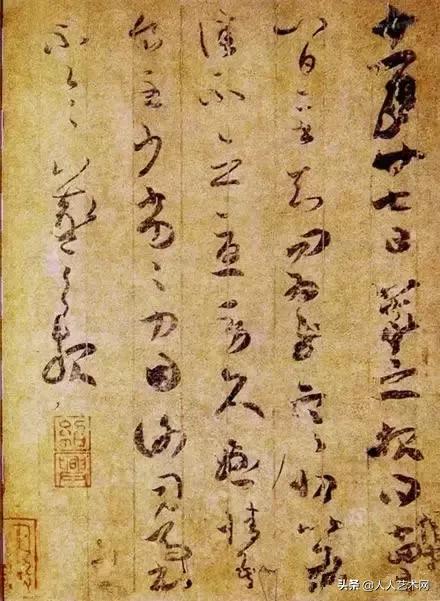 十一月廿七日羲之報得十四
十八日二書知問為慰寒切比各
佳不念憂勞久懸情吾
食至少劣劣力因謝司馬書
不一一羲之報
紹興
头条 @人人艺术网